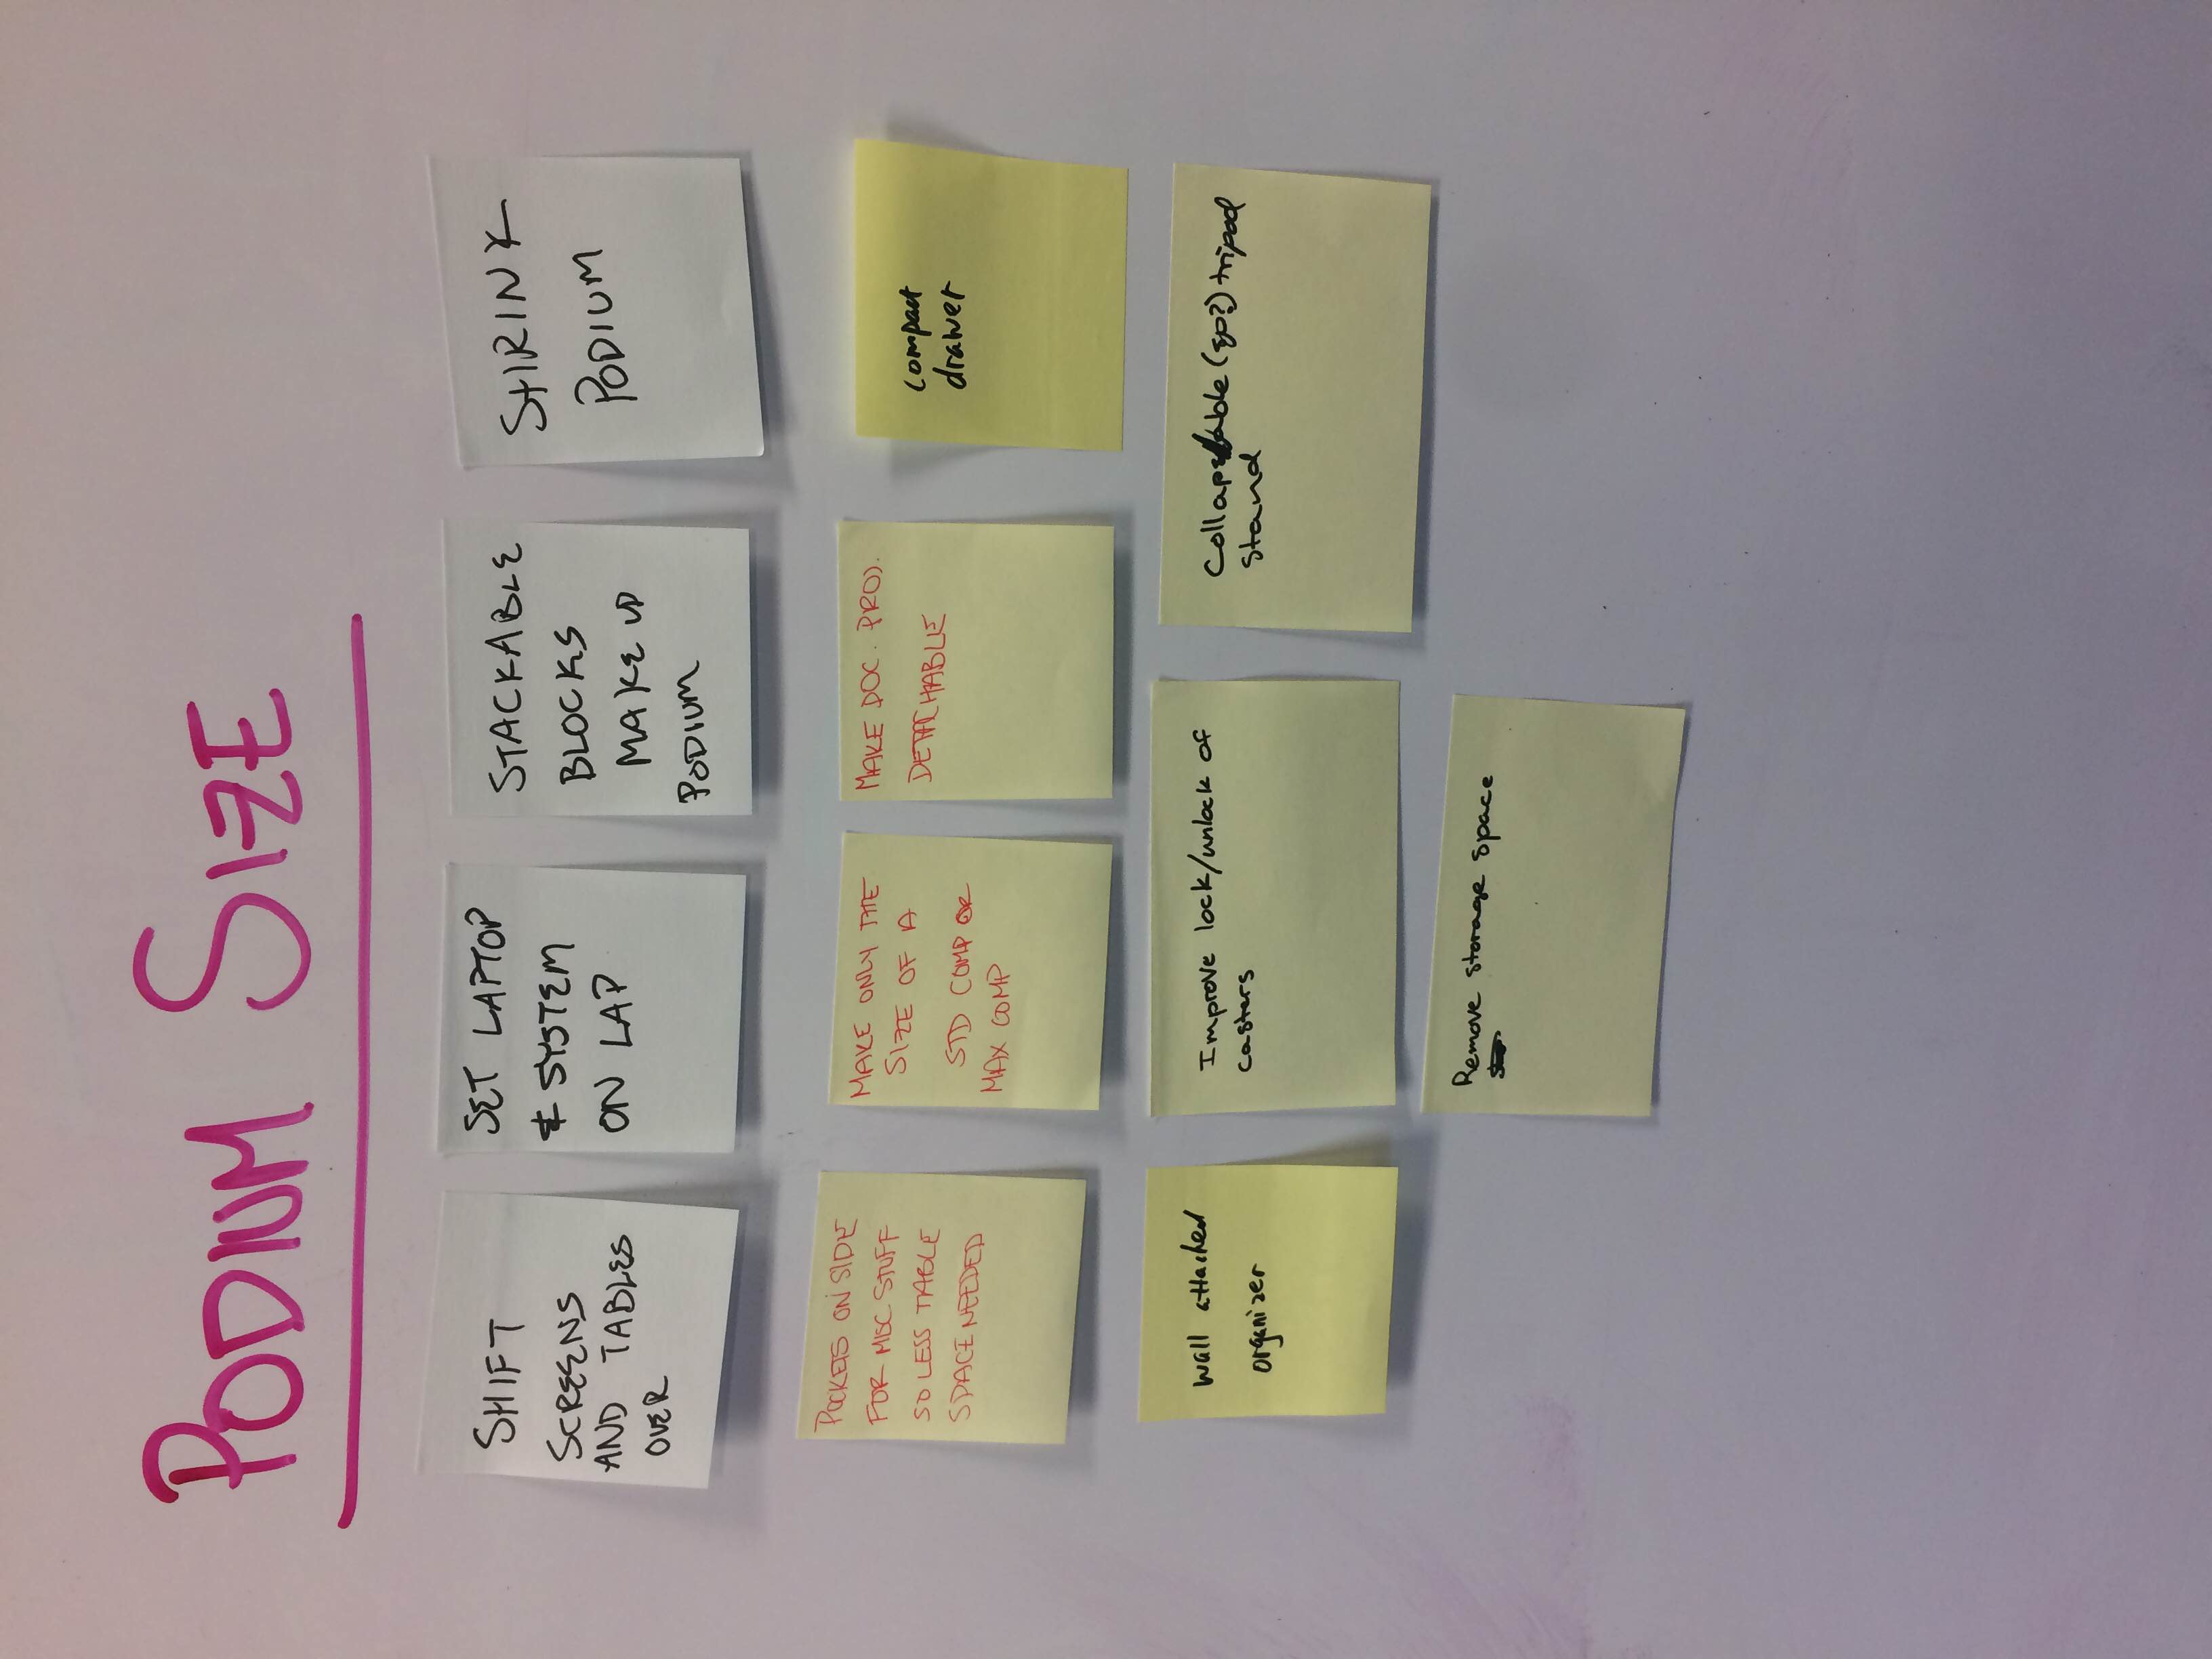 PODIUM SIZE
SHIFT
SCREENS
AND TABLES
OVER
SET LAPTOP
& SYSTEM
ON LAP
STACKABLE
BLOCKS
MAKE UP
PODIUM
SHRINK
PODIUM
POCKETS ON SIDE
FOR MISC. STUFF
SO LESS TABLE
SPACE NEEDED
MAKE ONLY THE
SIZE OF A
STD COMP OR
MAX COMP
MAKE DOC. PROJ.
DETACHABLE
compact
drawer
wall attached
organizer
Improve lock/unlock of
casters
Collapsable (sp?) tripod
stand
Remove storage space